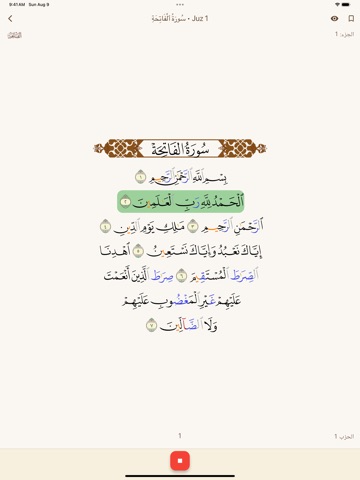 9:41AM Sun Aug 9
سُورَةُ ٱلْفَاتِحَةِ • Juz 1
الجزء: 1
سُورَةُ الْفَاتِحَةِ
بِسْمِ ٱللَّهِ ٱلرَّحْمَٰنِ ٱلرَّحِيمِ ١
ٱلْحَمْدُ لِلَّهِ رَبِّ ٱلْعَٰلَمِينَ ٢
ٱلرَّحْمَٰنِ ٱلرَّحِيمِ ٣ مَٰلِكِ يَوْمِ ٱلدِّينِ ٤
إِيَّاكَ نَعْبُدُ وَإِيَّاكَ نَسْتَعِينُ ٥ ٱهْدِنَا
ٱلصِّرَٰطَ ٱلْمُسْتَقِيمَ ٦ صِرَٰطَ ٱلَّذِينَ أَنْعَمْتَ
عَلَيْهِمْ غَيْرِ ٱلْمَغْضُوبِ عَلَيْهِمْ
وَلَا ٱلضَّآلِّينَ ٧
1
الحزب 1